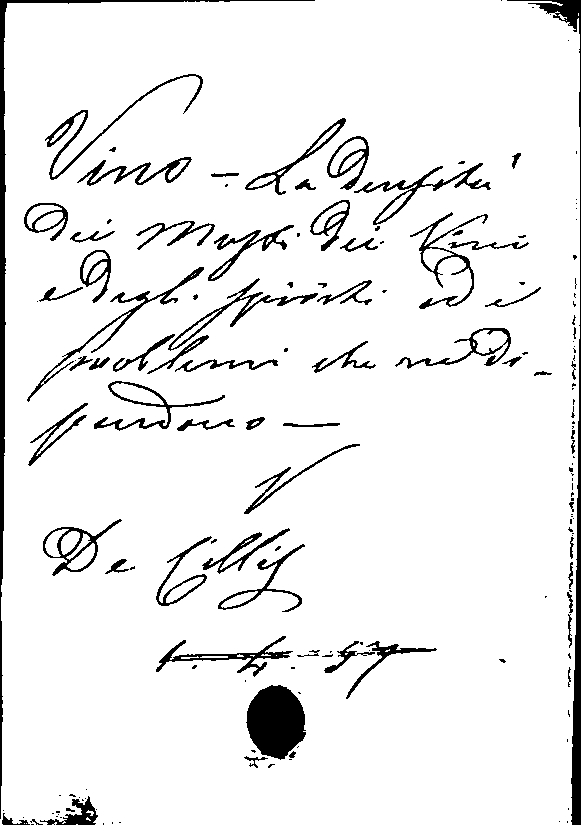 Vino – La densità
dei Mosti dei Vini
e degli spiriti ed i
problemi che ne di-
pendono –
V
De Cillis
1. 4. 57